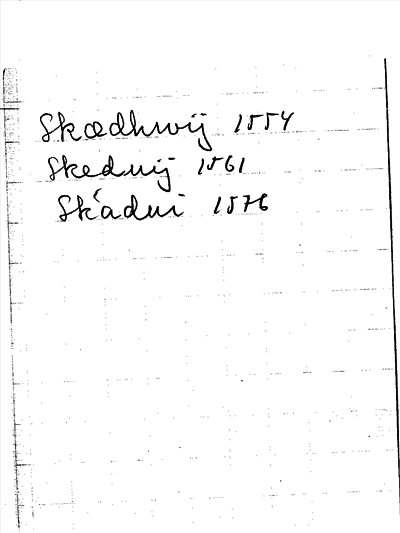 Skædhwij 1554
Skedvij 1561
Sk'advi 1576